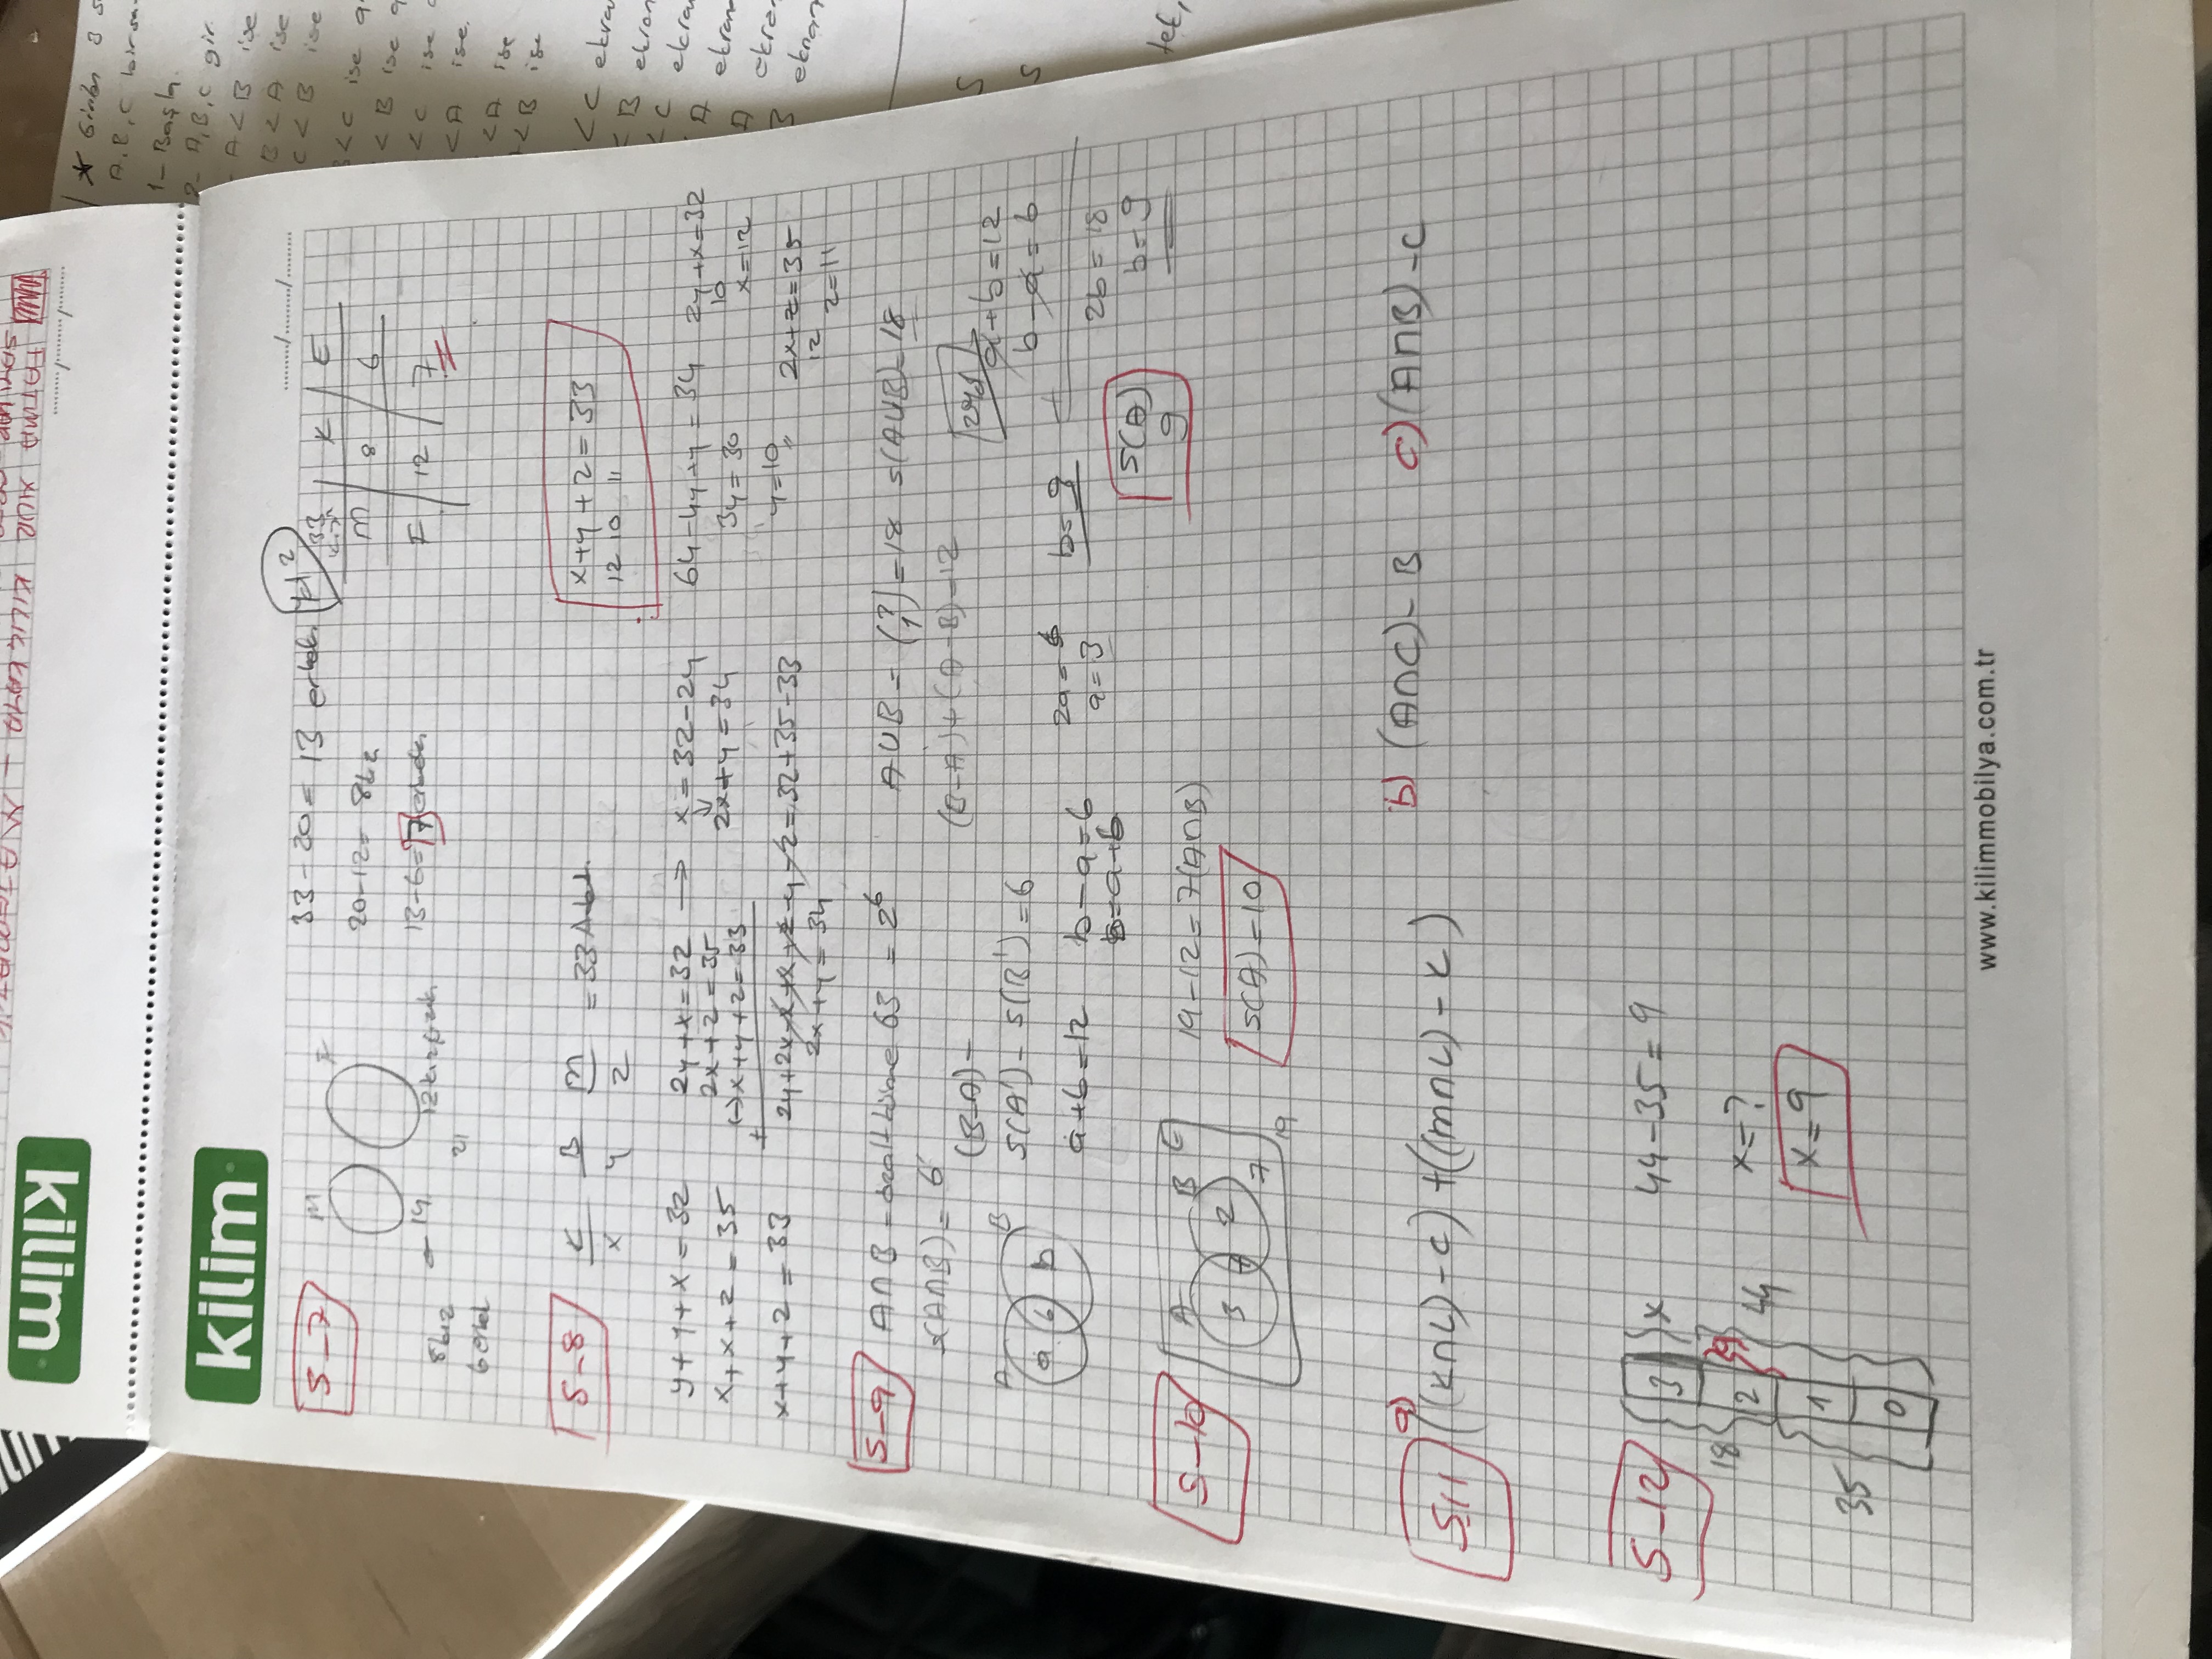 FATMA NUR KILIÇKAYA - MATEMATİK
...../...../.....
kilim
kilim
...../...../.....
S-7
M
F
33-20=13 erkek
20-12=8kız
13-6=7 erkek
14
21
8kız
6 erkek
2
33
K
E
M
8
6
F
12
7
S-8
K B M
x y z
=33
x+y+z=33
12 10 11
y+y+x=32
x+x+z=35
x+y+z=33
2y+x=32 →
2x+z=35
(-) x+y+z=33
+
2y+2x-x+x+z-y-z=32+35-33
2x+y=34
x=32-2y
2x+y=34
64-4y+y=34
3y=30
y=10
2y+x=32
10
x=12
2x+z=35
12
z=11
S-9
A∩B = özalt küme 63 = 2^6
s(A∩B)=6
A∪B = (?/1)=18 s(A∪B)=18
(B-A)-
(B-A)+(A-B)=12
s(A')-s(B')=6
A
B
a 6 b
a+b=12
b-a=6
b=a+6
2a=6
a=3
b=9
a+b=12
b-a=6
+
2b=18
b=9
s(A)
9
S-10
A
B
E
3
7
2
7
19
19-12=7(A∩B)
s(A)=10
S-11
a)
((K∩L)-C)+((M∩L)-K)
b) (A∩C)-B
c) (A∩B)-C
S-12
3
2
1
0
x
18
9
44
35
44-35=9
x=?
x=9
www.kilimmobilya.com.tr
A,B,C
1- Başla.
2- A,B,C gir.
A<B ise
B<A ise
C<B ise
B<C ise
<B ise
<C ise
<A ise.
<A ise
<B ise
<C ekran
<B ekran
<C ekran
A ekran
A ekran
B ekran
S
S
tek,